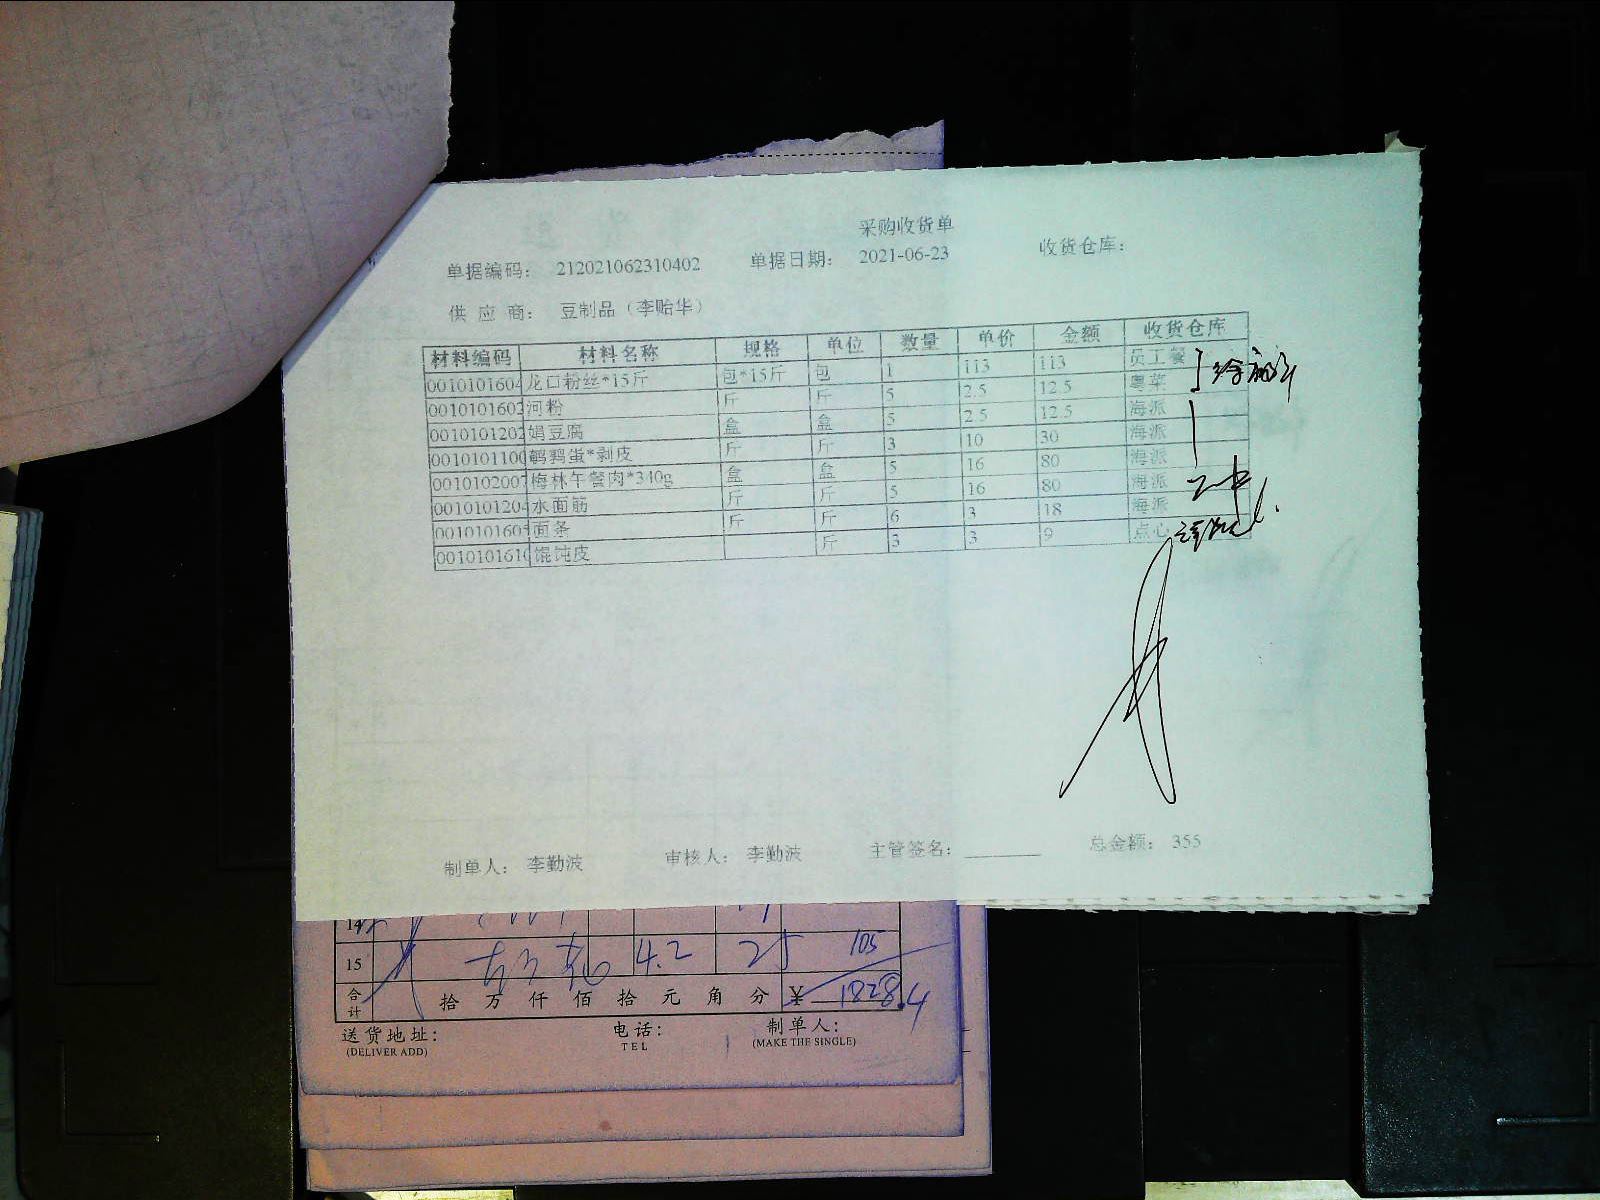 采购收货单
单据编码： 212021062310402 单据日期： 2021-06-23 收货仓库：
供 应 商： 豆制品（李贻华）
材料编码 材料名称 规格 单位 数量 单价 金额 收货仓库
0010101604 龙口粉丝*15斤 包*15斤 包 1 113 113 员工餐
0010101602 河粉 斤 斤 5 2.5 12.5 粤菜
0010101202 娟豆腐 盒 盒 5 2.5 12.5 海派
0010101100 鹌鹑蛋*剥皮 斤 斤 3 10 30 海派
0010102007 梅林午餐肉*340g 盒 盒 5 16 80 海派
0010101204 水面筋 斤 斤 5 16 80 海派
001010160 面条 斤 斤 6 3 18 海派
001010161 馄饨皮 斤 3 3 9 点心
制单人： 李勤波 审核人： 李勤波 主管签名： 总金额： 355
14
15 4.2 25 105
合计 拾 万 仟 佰 拾 元 角 分 ¥ 1828.4
送货地址： 电话： 制单人：
(DELIVER ADD) TEL (MAKE THE SINGLE)